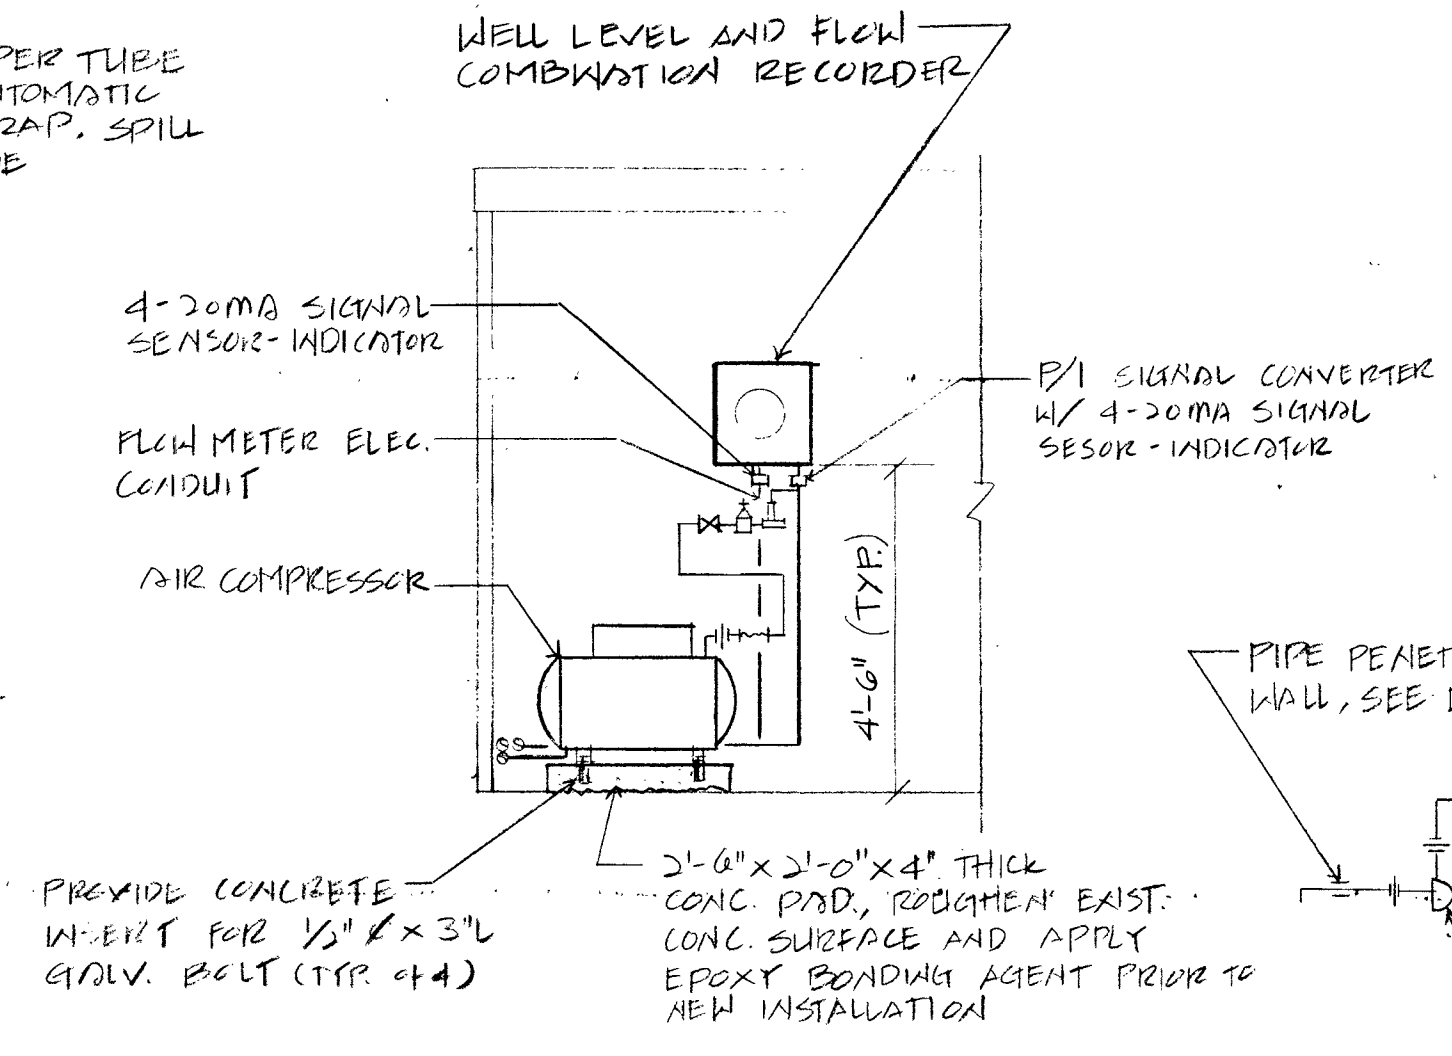 PER TUBE
UTOMATIC
RAP. SPILL
WELL LEVEL AND FLOW
COMBINATION RECORDER
4-20MA SIGNAL
SENSOR-INDICATOR
FLOW METER ELEC.
CONDUIT
AIR COMPRESSOR
P/I SIGNAL CONVERTER
W/ 4-20MA SIGNAL
SESOR-INDICATOR
4'-6" (TYP.)
PIPE PENET
WALL, SEE
PROVIDE CONCRETE
INSERT FOR 1/2" ȼ x 3"L
GALV. BOLT (TYP. of 4)
2'-6" x 2'-0" x 4" THICK
CONC. PAD., ROUGHEN EXIST.
CONC. SURFACE AND APPLY
EPOXY BONDING AGENT PRIOR TO
NEW INSTALLATION